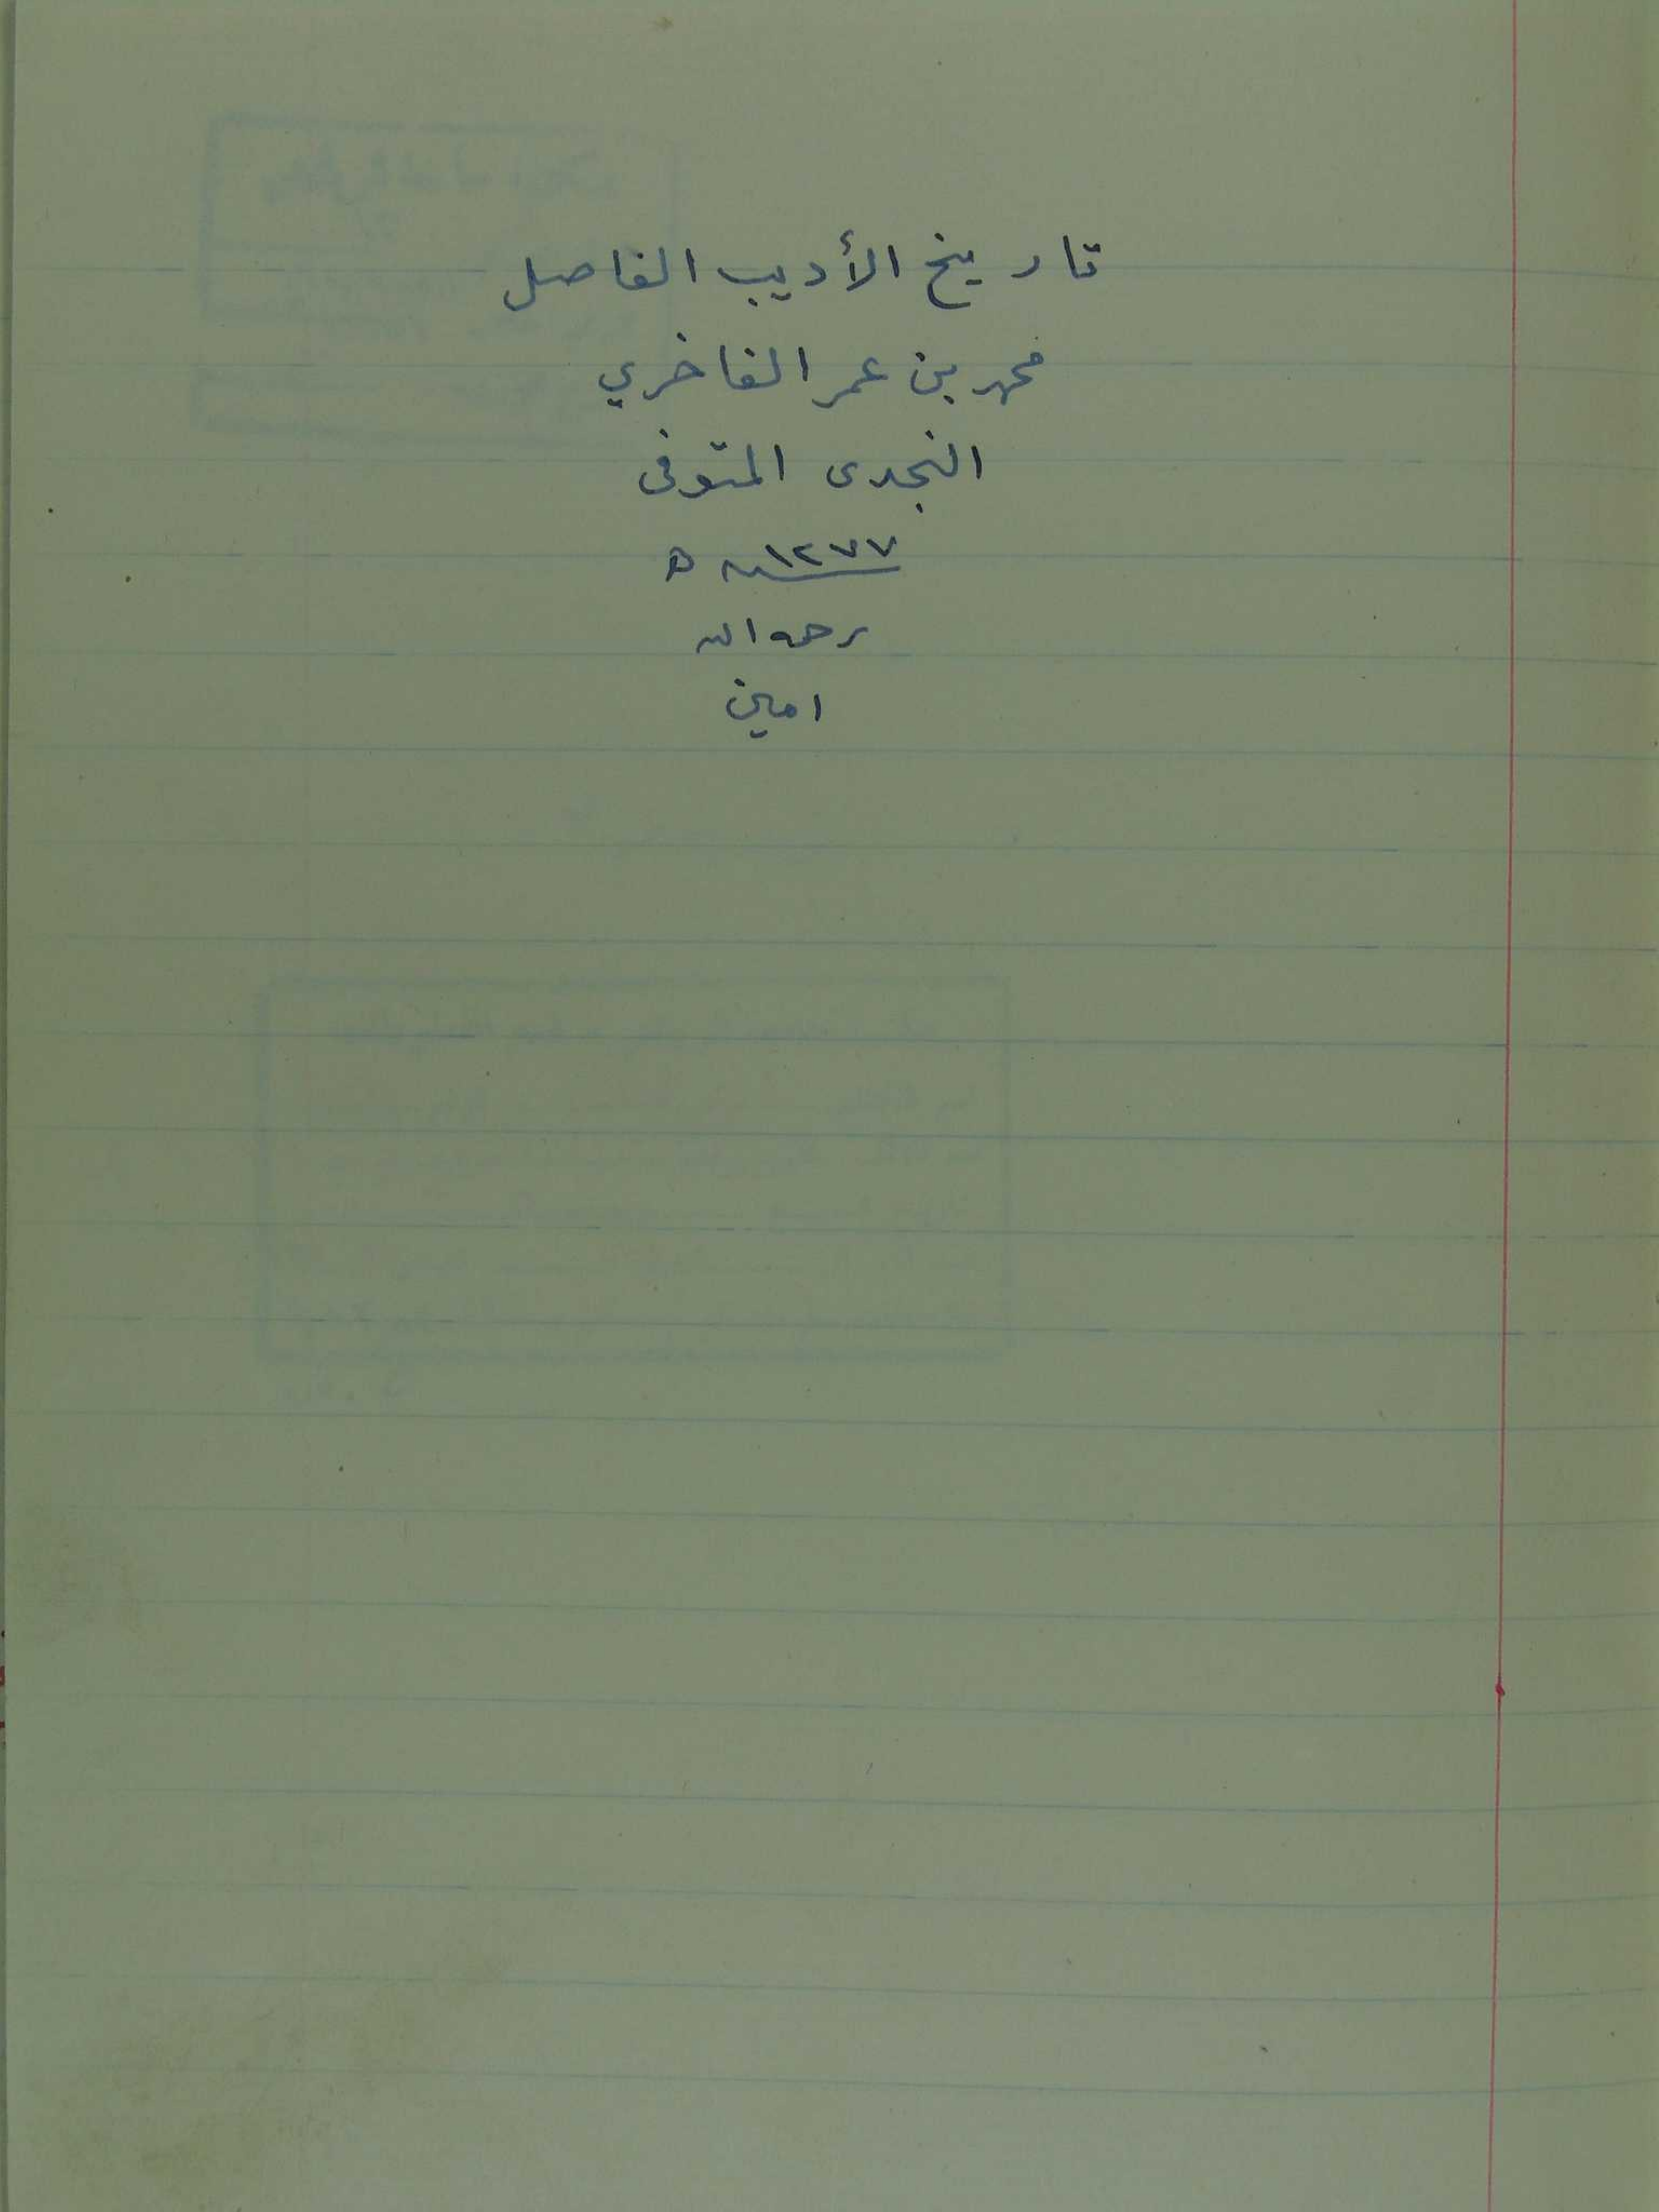 تاريخ الأديب الفاضل
محمد بن عمر الفاخري
النجدى المتوفى
سنة ١٢٧٧ ه
رحمه الله
امين